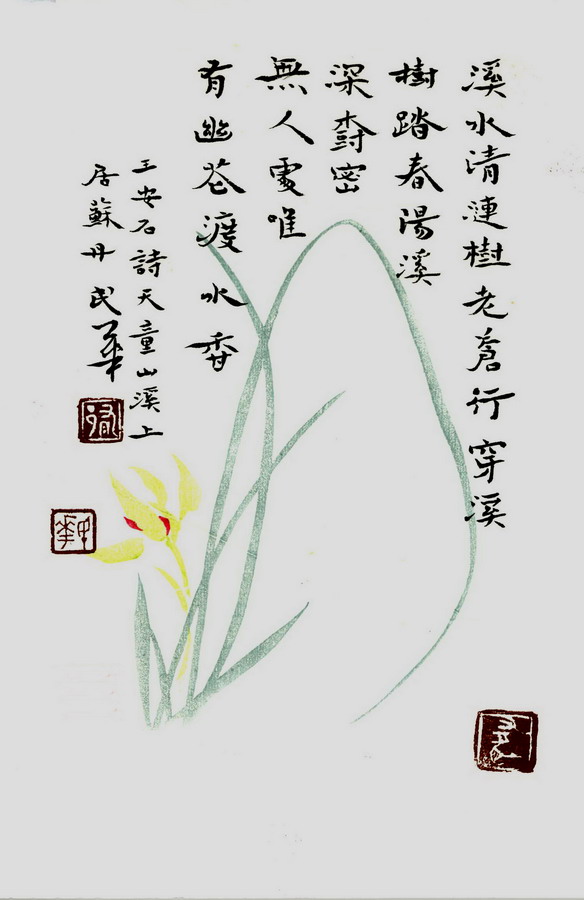 溪水清漣樹老蒼行穿溪
樹踏春陽溪
深樹密
無人處唯
有幽花渡水香
王安石詩天童山溪上
居蘇丹民華